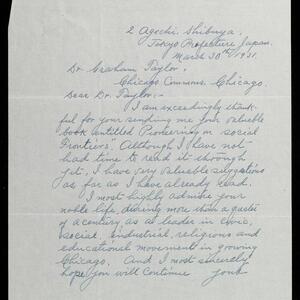 2 Agechi. Shibuya.
Tokyo Prefecture Japan.
March 30th/1931.
Dr. Graham Taylor,
Chicago Commons, Chicago.
Dear Dr. Taylor:-
I am exceedingly thank-
ful for your sending me your valuable
book entitled Pioneering on social
Frontiers. Although I have not
had time to read it through
yet, I have very valuable suggestions
as far as I have already read.
I most highly admire your
noble life, during more than a quarter
of a century, as a leader in civic,
social, industrial, religious and
educational movement in growing
Chicago. And I most sincerely
hope you will continue your